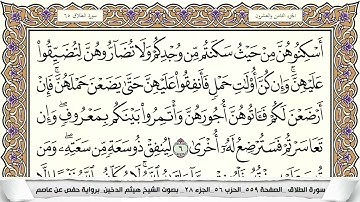 الجزء الثامن والعشرون
سورة الطلاق ٦٥
أَسْكِنُوهُنَّ مِنْ حَيْثُ سَكَنتُم مِّن وُجْدِكُمْ وَلَا تُضَآرُّوهُنَّ لِتُضَيِّقُوا۟
عَلَيْهِنَّ ۚ وَإِن كُنَّ أُو۟لَٰتِ حَمْلٍ فَأَنفِقُوا۟ عَلَيْهِنَّ حَتَّىٰ يَضَعْنَ حَمْلَهُنَّ ۚ فَإِنْ
أَرْضَعْنَ لَكُمْ فَـَٔاتُوهُنَّ أُجُورَهُنَّ ۖ وَأْتَمِرُوا۟ بَيْنَكُم بِمَعْرُوفٍ ۖ وَإِن
تَعَاسَرْتُمْ فَسَتُرْضِعُ لَهُۥٓ أُخْرَىٰ ٦ لِيُنفِقْ ذُو سَعَةٍ مِّن سَعَتِهِۦ ۖ وَمَن
سورة الطلاق _ الصفحة ٥٥٩ _ الحزب ٥٦ _ الجزء ٢٨ _ بصوت الشيخ هيثم الدخين _ برواية حفص عن عاصم